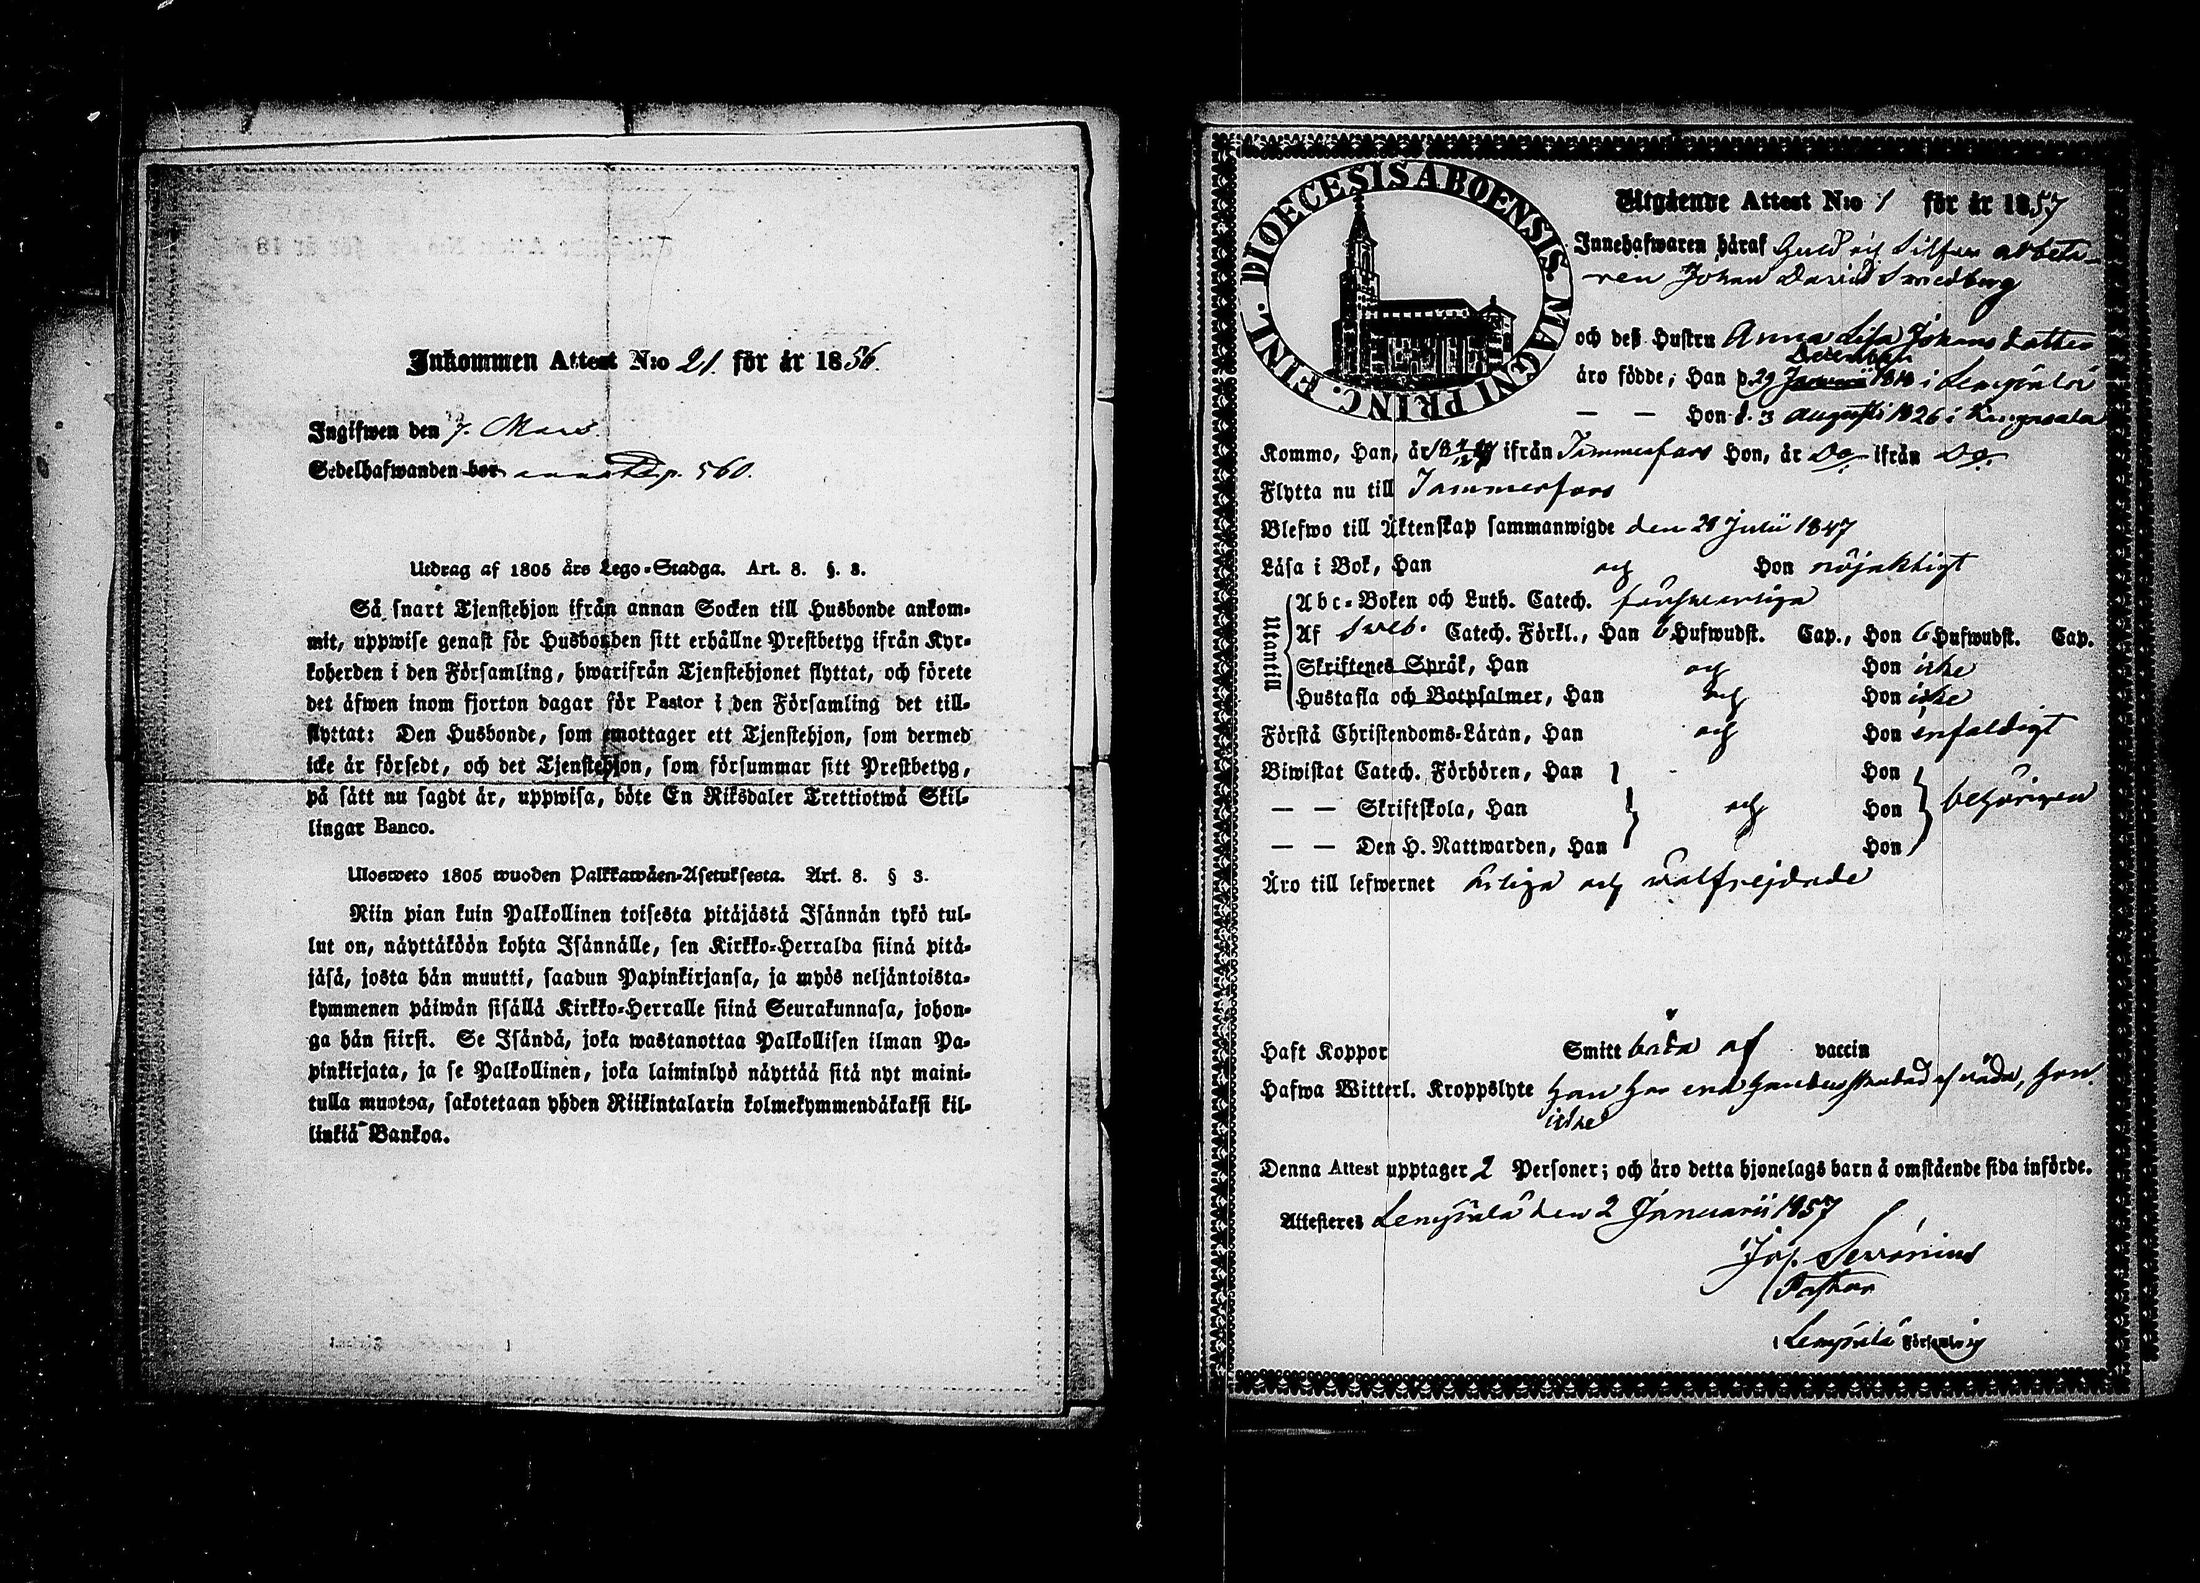 Inkommen Attest N:o 21. för år 1856.
Ingifwen den 7. Mars.
Sedelhafwanden bor p. 560.
Utdrag af 1805 års Lego-Stadga. Art. 8. §. 8.
Så snart Tjenstehjon ifrån annan Socken till Husbonde ankom-
mit, uppwise genast för Husbonden sitt erhållne Prestbetyg ifrån Kyr-
koherden i den Församling, hwarifrån Tjenstehjonet flyttat, och förete
det äfwen inom fjorton dagar för Pastor i den Församling det till-
flyttat: Den Husbonde, som emottager ett Tjenstehjon, som dermed
icke är försedt, och det Tjenstehjon, som försummar sitt Prestbetyg,
på sätt nu sagdt är, uppwisa, böte En Riksdaler Trettiotwå Skil-
lingar Banco.
Ulosweto 1805 wuoden Palkkawäen-Asetuksesta. Art. 8. § 3.
Niin pian kuin Palkollinen toisesta pitäjästä Isännän tykö tul-
lut on, näyttäköön kohta Isännälle, sen Kirkko-Herralda siinä pitä-
jäsä, josta hän muutti, saadun Papinkirjansa, ja myös neljäntoista-
kymmenen päiwän sisällä Kirkko-Herralle siinä Seurakunnasa, johon-
ga hän siirsi. Se Isändä, joka wastanottaa Palkollisen ilman Pa-
pinkirjata, ja se Palkollinen, joka laiminlyö näyttää sitä nyt maini-
tulla muotoa, sakotetaan yhden Riikintalarin kolmekymmendäkaksi kil-
linkiä Bankoa.
DIOECESIS ABOENSIS. MAGNI PRINC. FINL.
Utgående Attest N:o 1 för år 1857
Innehafwaren häraf Guld och Silfver arbeta-
ren Johan David Smedberg
och deß Hustru Anna Lisa Johansdotter
December
äro födde, Han d. 29 Januarii 1810 i Lempäälä
— — Hon d. 3 Augusti 1826 i Kangasala
Kommo, Han, år ifrån Tammerfors Hon, år Do ifrån Do.
Flytta nu till Tammerfors
Blefwo till Äktenskap sammanwigde den 28 Julii 1847
Läsa i Bok, Han och Hon nöjaktigt
Utantill
Abc-Boken och Luth. Catech. försvarliga
Af Sveb. Catech. Förkl., Han 6 Hufwudst. Cap., Hon 6 Hufwudst. Cap.
Skriftenes Språk, Han och Hon icke
Hustafla och Botpsalmer, Han och Hon icke
Förstå Christendoms-Läran, Han och Hon enfaldigt
Biwistat Catech. Förhören, Han Hon
— — Skriftskola, Han och Hon behörigen
— — Den H. Nattwarden, Han Hon
Äro till lefwernet ärliga och välfrejdade
Haft Koppor Smitt båda af vaccin
Hafwa Witterl. Kroppslyte Han har af våda, Hon
icke
Denna Attest upptager 2 Personer; och äro detta hjonelags barn å omstående sida införde.
Attesteres Lempäälä den 2 Januarii 1857
Jos. Serenius
Pastor
i Lempäälä Församling